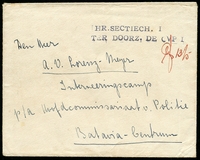 CHR. SECTIECH. I
TER DOORZ. DE CVP I
Den Heer
A. V. Lorenz-Meyr
Interneeringscamp
p/a Hoofdcommissariaat v. Politie
Batavia-Centrum